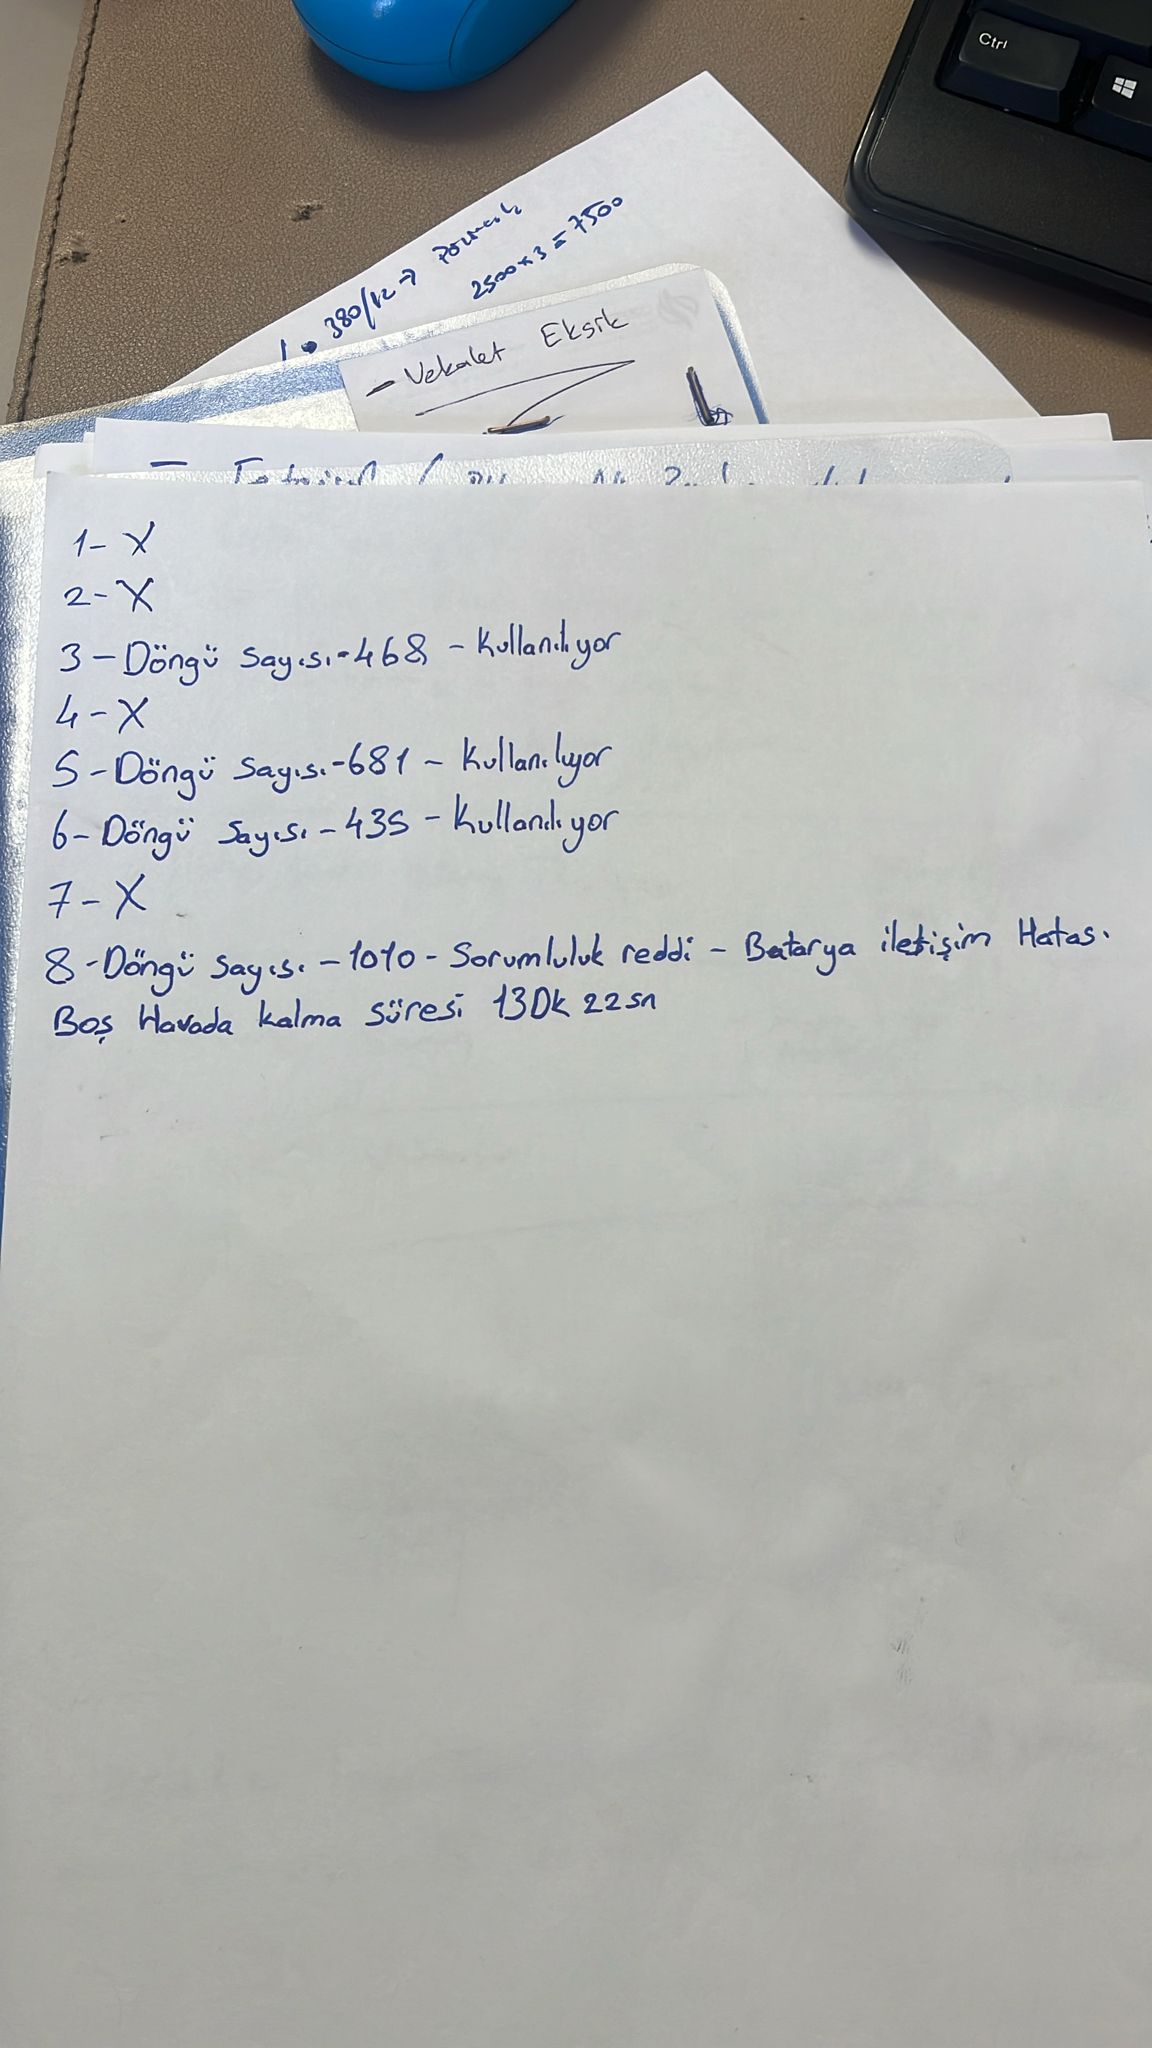 Ctrl
380/12 →
2500 x 3 = 7500
- Vekalet Eksik
1- X
2- X
3 - Döngü Sayısı - 468 - Kullanılıyor
4 - X
5 - Döngü Sayısı - 681 - Kullanılıyor
6 - Döngü Sayısı - 435 - Kullanılıyor
7 - X
8 - Döngü Sayısı - 1010 - Sorumluluk reddi - Batarya iletişim Hatası
Boş Havada kalma süresi 13Dk 22sn